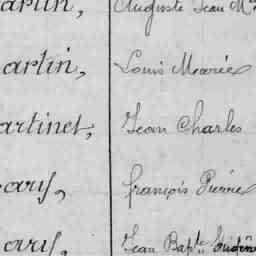 artin, Auguste Jean M
artin, Louis Marie
artinet, Jean Charles
aris, François Pierre
aris, Jean Bapte